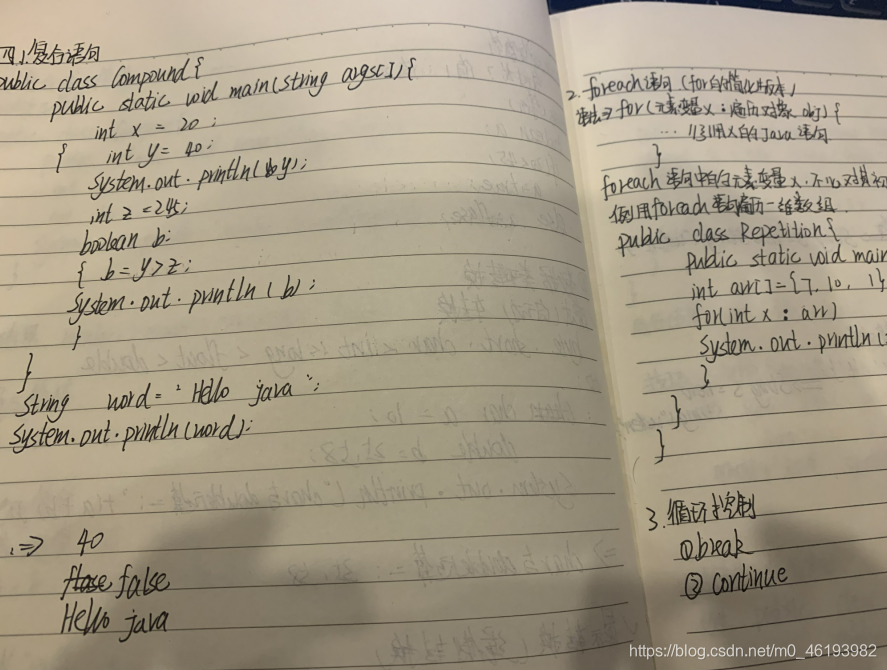 四、复合语句
public class Compound {
public static void main(String args[]) {
int x = 20;
{ int y = 40;
System.out.println(y);
int z = 245;
boolean b;
{ b = y>z;
System.out.println(b);
}
}
String word = "Hello java";
System.out.println(word);
⇒ 40
false
Hello java
2. foreach语句 (for的简化版本)
语法⇒for(元素变量x:遍历对象obj) {
… //引用x的Java语句
}
foreach语句中的元素变量x,不必对其初
例用foreach语句遍历一维数组.
public class Repetition {
public static void main
int arr[]={7, 10, 1};
for(int x : arr)
System.out.println(
}
}
}
3.循环控制
①break
② continue
https://blog.csdn.net/m0_46193982